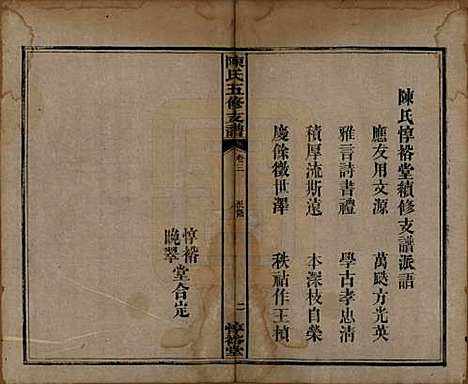 陳氏惇裕堂續修支譜派語
應友用文源　萬颷方光英
雅言詩書禮　學古孝忠清
積厚流斯遠　本深枝自榮
慶餘徵世澤　秩祜作王楨
惇裕
晚翠
堂合定
陳氏五修支譜
卷三
二
惇裕堂